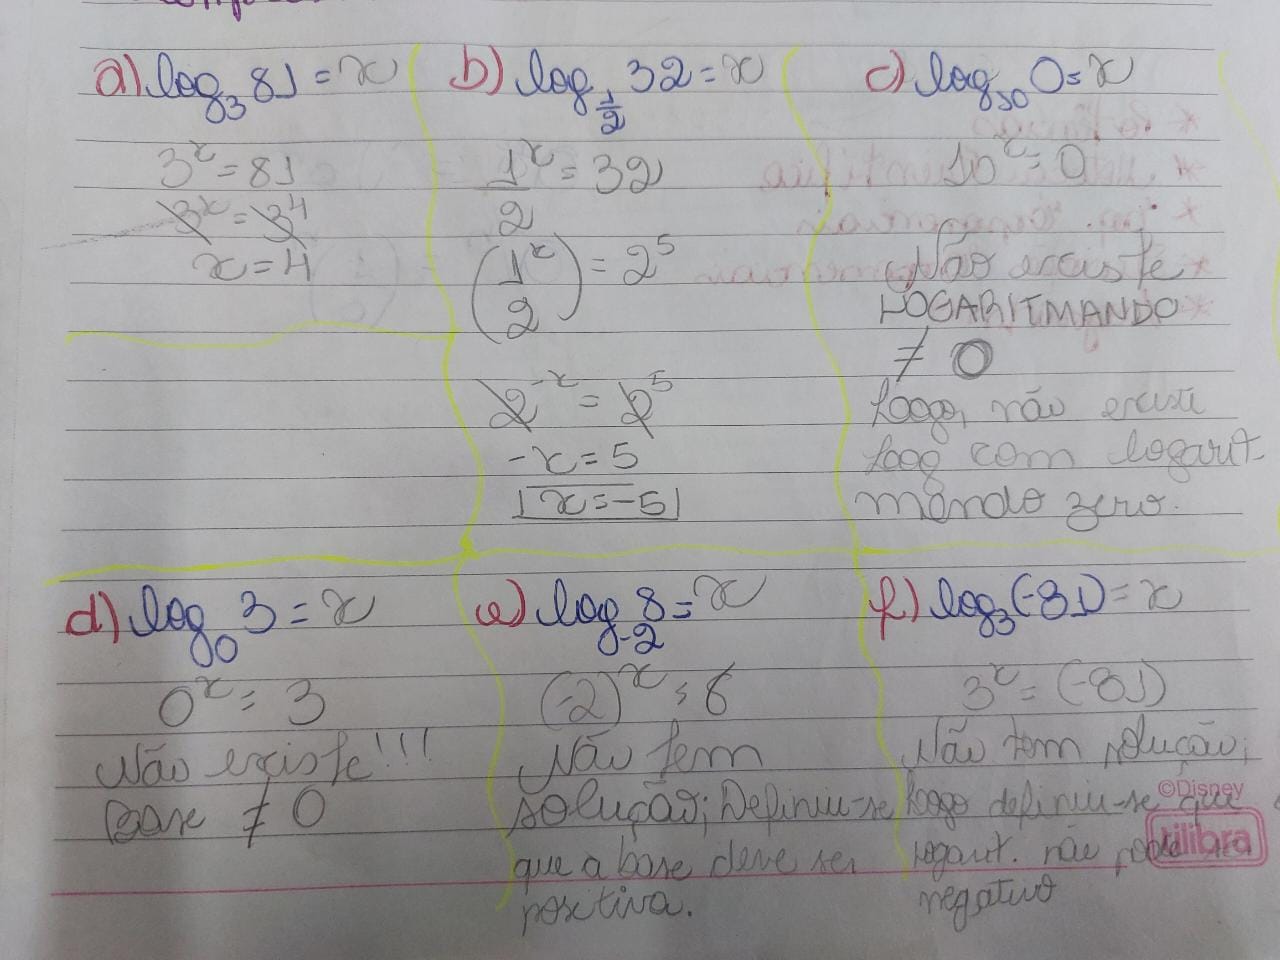 a) log₃ 81 = x
3ˣ = 81
3ˣ = 3⁴
x = 4
b) log_1/2 32 = x
1ˣ = 32
2
(1ˣ) = 2⁵
2
2⁻ˣ = 2⁵
-x = 5
x = -5
c) log₁₀ 0 = x
10ˣ = 0
Não existe
LOGARITMANDO
≠ 0
Logo, não existe
log com logarit-
mando zero.
d) log₀ 3 = x
0ˣ = 3
Não existe!!!
Base ≠ 0
e) log₋₂ 8 = x
(-2)ˣ = 8
Não tem
solução; Definiu-se
que a base deve ser
positiva.
f) log₃ (-81) = x
3ˣ = (-81)
Não tem solução;
Logo definiu-se que o
logarit. não pode ser
negativo
©Disney
tilibra